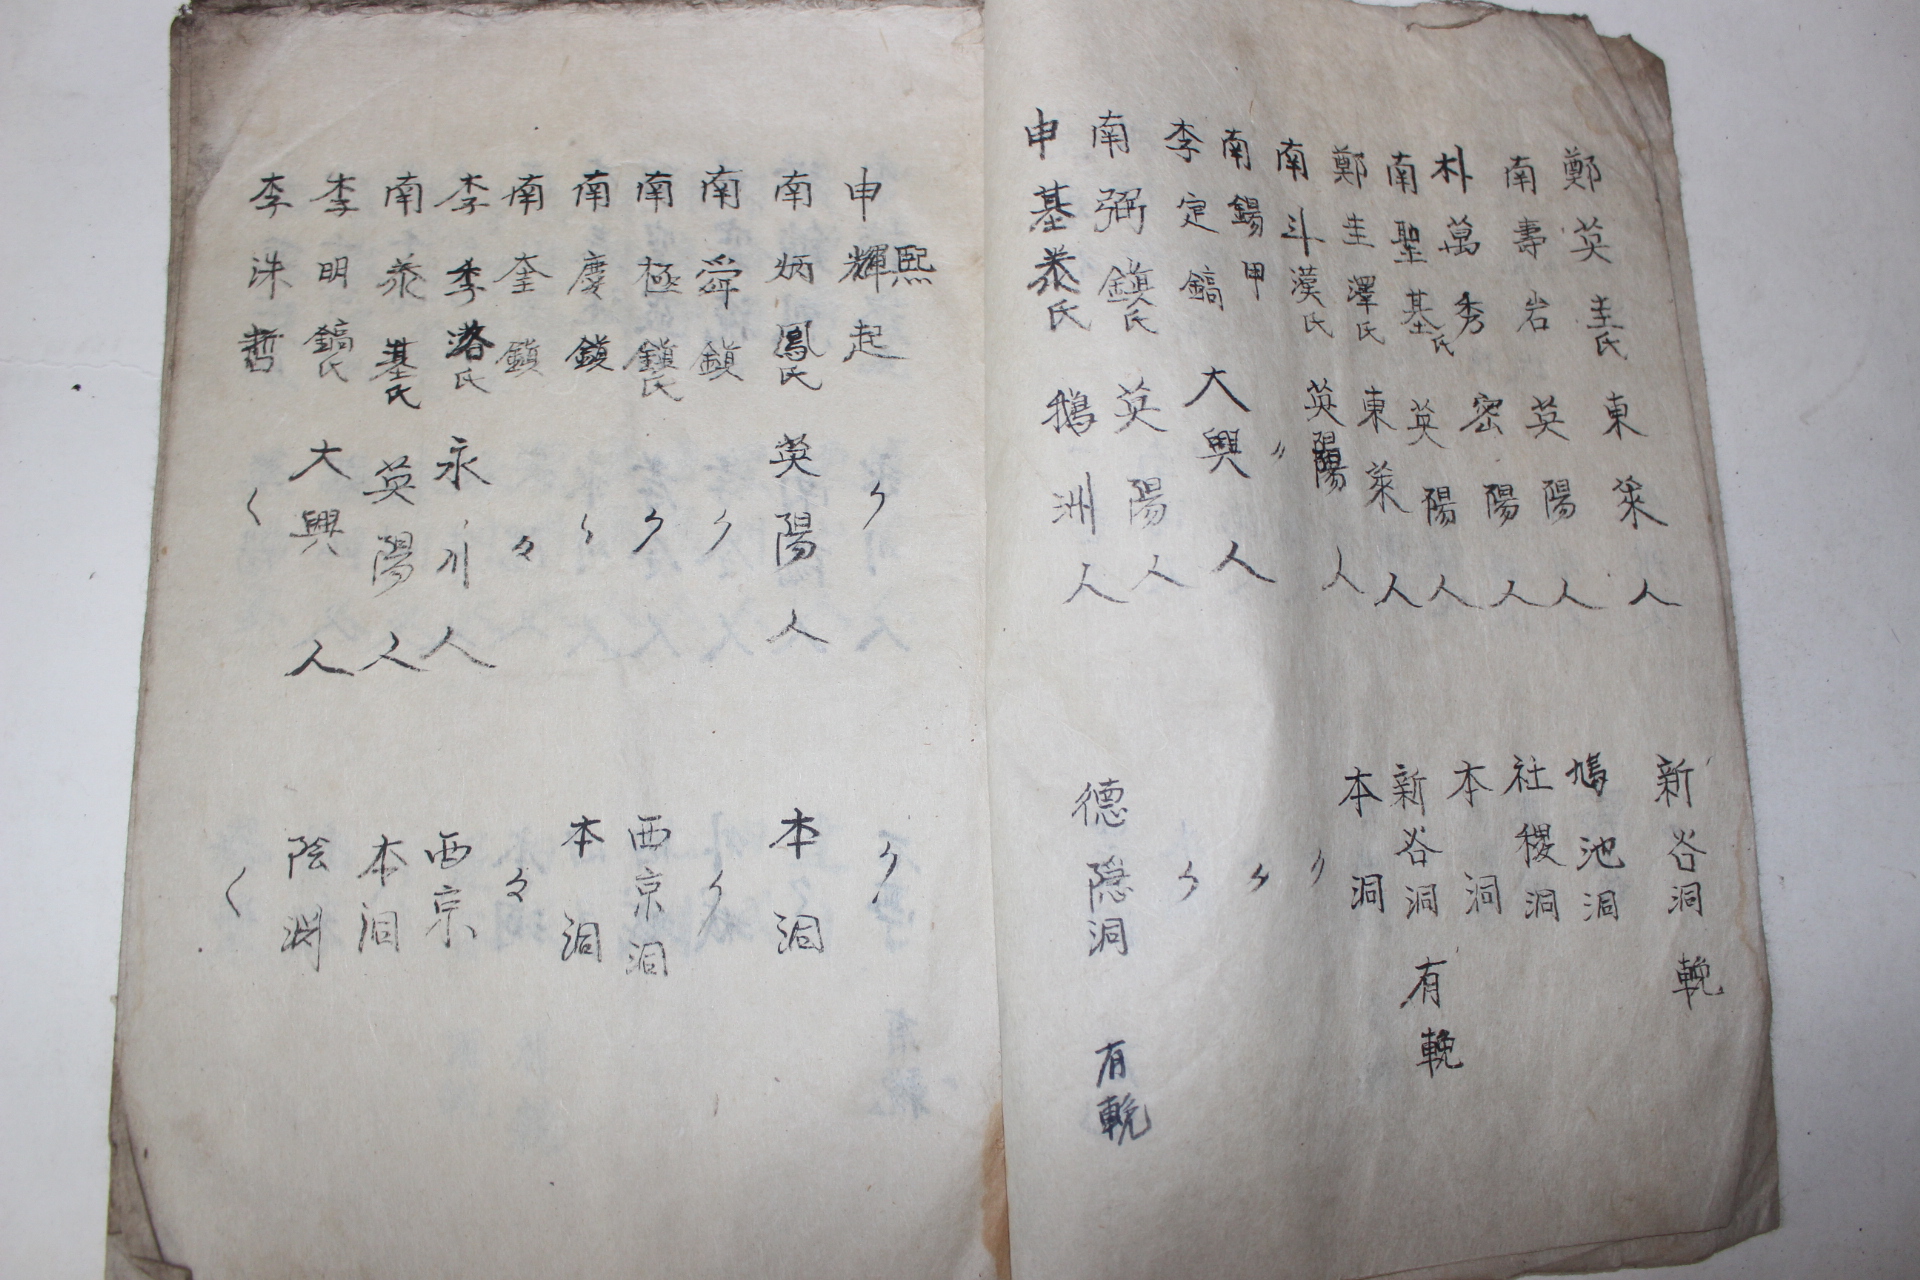 鄭英圭氏 東萊人 新谷洞 輓
南壽岩 英陽人 鳩池洞
朴萬秀 密陽人 社稷洞
南聖基氏 英陽人 本洞
鄭圭澤氏 東萊人 新谷洞 有輓
南斗漢氏 英陽人 本洞
南錫甲 〃 〃
李定鎬 大興人 〃
南弼鎭氏 英陽人 〃
申基泰氏 鵝洲人 德隱洞 有輓
申輝熙起 〃 〃
南炳鳳氏 英陽人 本洞
南舜鎭 〃 〃
南極鎭氏 〃 西京洞
南慶鎭 〃 本洞
南奎鎭 々 々
李季洛氏 永川人 西京
南泰基氏 英陽人 本洞
李明鎬氏 大興人 陰淵
李洙哲 〱 〱